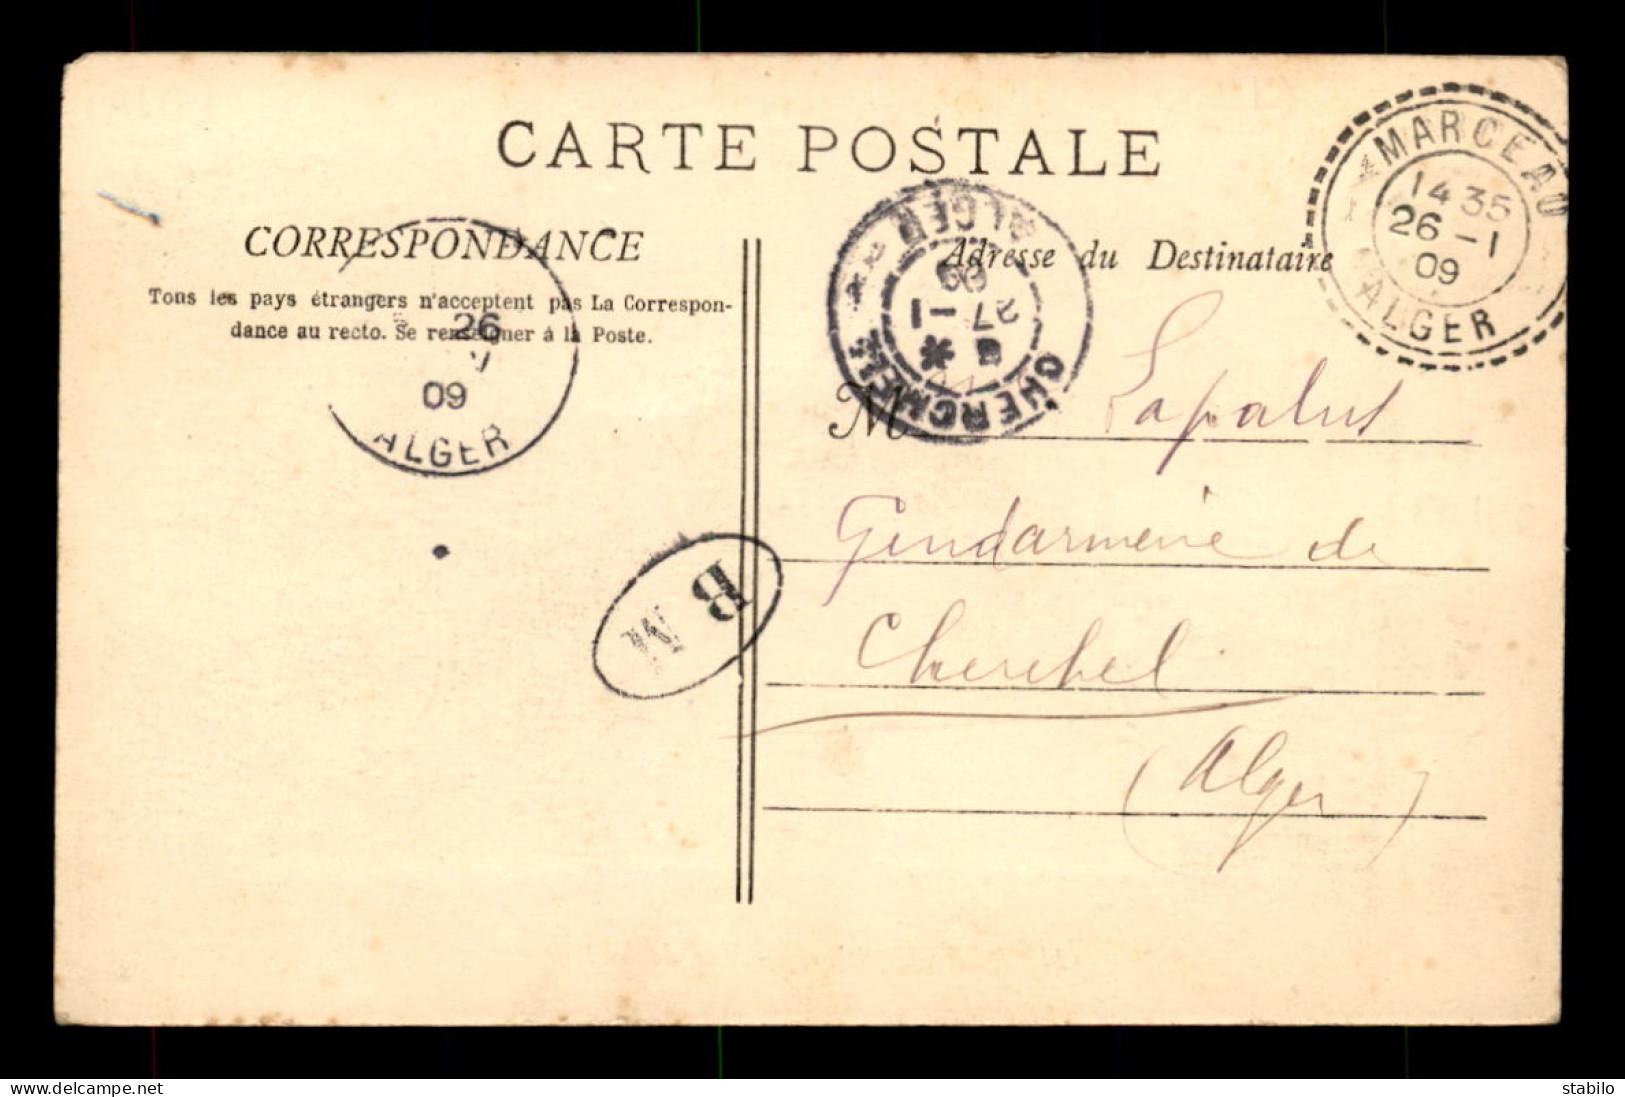 CARTE POSTALE
CORRESPONDANCE
Tous les pays étrangers n'acceptent pas La Correspon-
dance au recto. Se renseigner à la Poste.
26
09
ALGER
B M
ALGER
CHERCHELL
27 -1
09
Adresse du Destinataire
MARCEAU
14 35
26 -1
09
ALGER
M Lapalus
Gendarmerie de
Cherchel
(Alger)
www.delcampe.net
stabilo